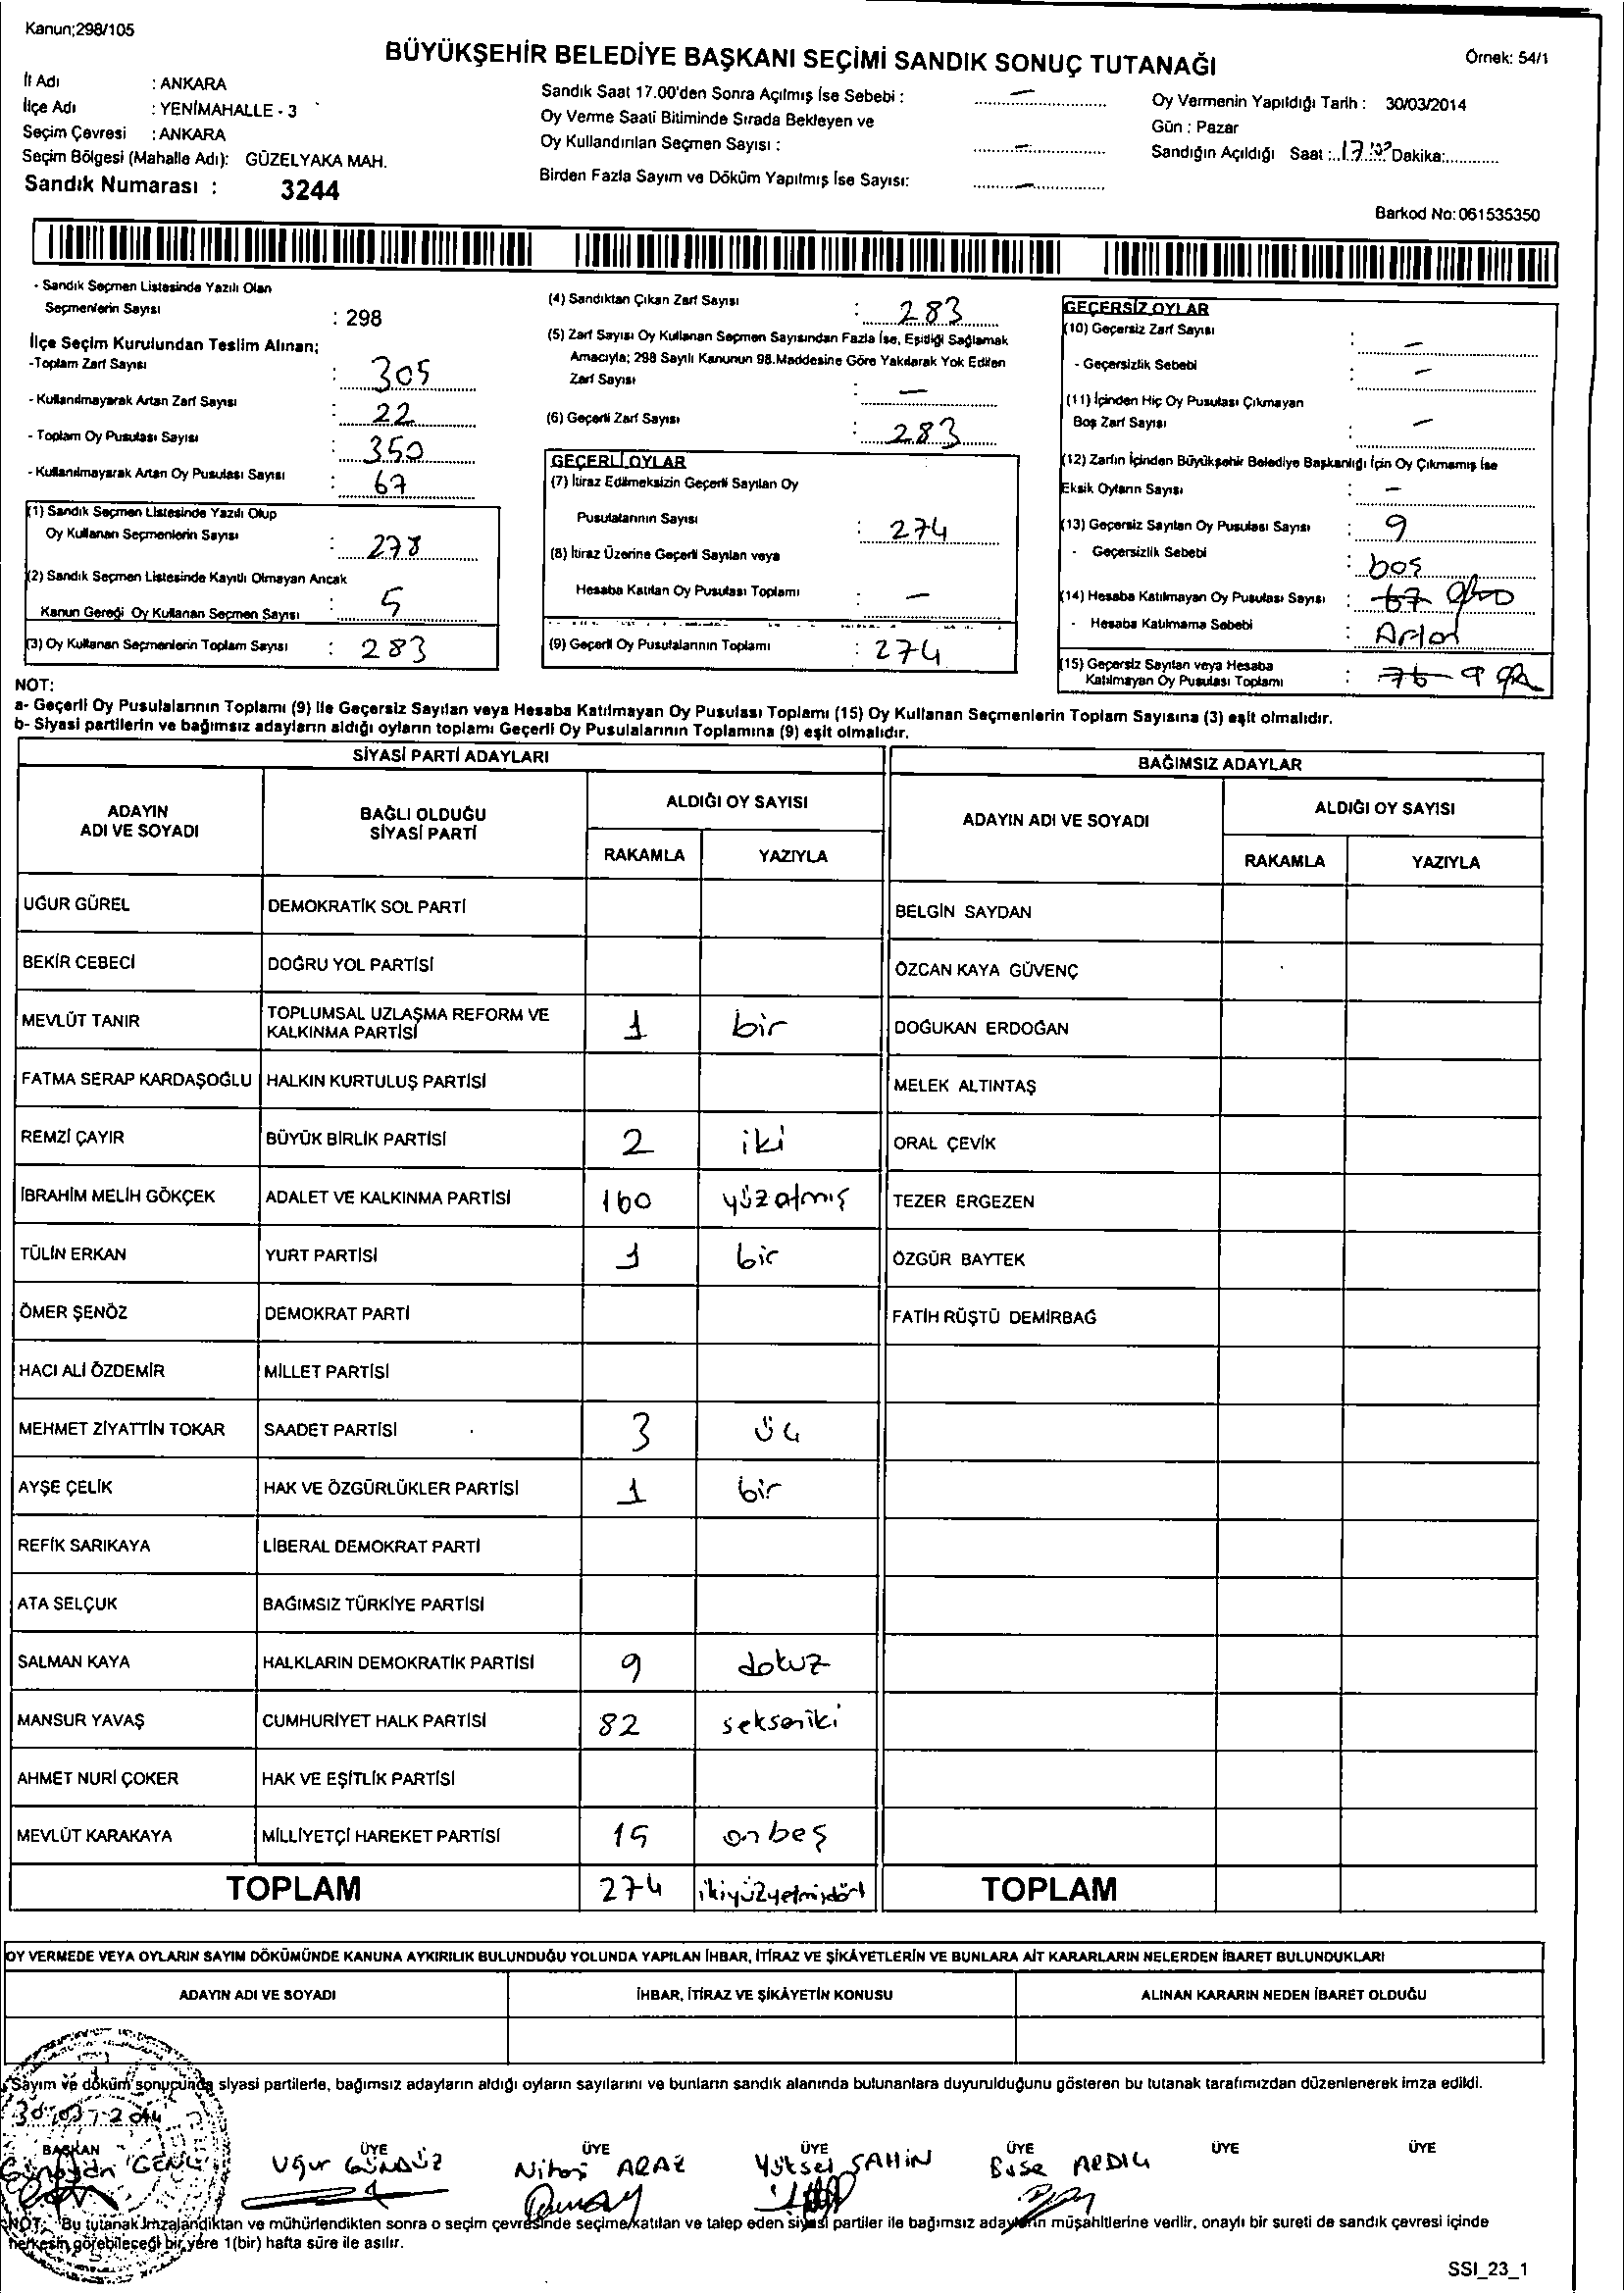 Kanun;298/105
BÜYÜKŞEHİR BELEDİYE BAŞKANI SEÇİMİ SANDIK SONUÇ TUTANAĞI
Örnek: 54/1
İl Adı : ANKARA
İlçe Adı : YENİMAHALLE - 3
Seçim Çevresi : ANKARA
Seçim Bölgesi (Mahalle Adı): GÜZELYAKA MAH.
Sandık Numarası : 3244
Sandık Saat 17.00'den Sonra Açılmış İse Sebebi : —
Oy Verme Saati Bitiminde Sırada Bekleyen ve
Oy Kullandırılan Seçmen Sayısı : —
Birden Fazla Sayım ve Döküm Yapılmış İse Sayısı: —
Oy Vermenin Yapıldığı Tarih : 30/03/2014
Gün : Pazar
Sandığın Açıldığı Saat : 17:00 Dakika:
Barkod No: 061535350
- Sandık Seçmen Listesinde Yazılı Olan
Seçmenlerin Sayısı : 298
İlçe Seçim Kurulundan Teslim Alınan;
-Toplam Zarf Sayısı : 305
- Kullanılmayarak Artan Zarf Sayısı : 22
- Toplam Oy Pusulası Sayısı : 350
- Kullanılmayarak Artan Oy Pusulası Sayısı : 67
(1) Sandık Seçmen Listesinde Yazılı Olup
Oy Kullanan Seçmenlerin Sayısı : 278
(2) Sandık Seçmen Listesinde Kayıtlı Olmayan Ancak
Kanun Gereği Oy Kullanan Seçmen Sayısı : 5
(3) Oy Kullanan Seçmenlerin Toplam Sayısı : 283
(4) Sandıktan Çıkan Zarf Sayısı : 283
(5) Zarf Sayısı Oy Kullanan Seçmen Sayısından Fazla İse, Eşitliği Sağlamak
Amacıyla; 298 Sayılı Kanunun 98.Maddesine Göre Yakılarak Yok Edilen
Zarf Sayısı : —
(6) Geçerli Zarf Sayısı : 283
GEÇERLİ OYLAR
(7) İtiraz Edilmeksizin Geçerli Sayılan Oy
Pusulalarının Sayısı : 274
(8) İtiraz Üzerine Geçerli Sayılan veya
Hesaba Katılan Oy Pusulası Toplamı : —
(9) Geçerli Oy Pusulalarının Toplamı : 274
GEÇERSİZ OYLAR
(10) Geçersiz Zarf Sayısı : —
- Geçersizlik Sebebi : —
(11) İçinden Hiç Oy Pusulası Çıkmayan
Boş Zarf Sayısı : —
(12) Zarfın İçinden Büyükşehir Belediye Başkanlığı İçin Oy Çıkmamış İse
Eksik Oyların Sayısı : —
(13) Geçersiz Sayılan Oy Pusulası Sayısı : 9
- Geçersizlik Sebebi : boş
(14) Hesaba Katılmayan Oy Pusulası Sayısı : 67
- Hesaba Katılmama Sebebi : Artan
(15) Geçersiz Sayılan veya Hesaba
Katılmayan Oy Pusulası Toplamı : 76 9
NOT:
a- Geçerli Oy Pusulalarının Toplamı (9) ile Geçersiz Sayılan veya Hesaba Katılmayan Oy Pusulası Toplamı (15) Oy Kullanan Seçmenlerin Toplam Sayısına (3) eşit olmalıdır.
b- Siyasi partilerin ve bağımsız adayların aldığı oyların toplamı Geçerli Oy Pusulalarının Toplamına (9) eşit olmalıdır.
SİYASİ PARTİ ADAYLARI
BAĞIMSIZ ADAYLAR
ADAYIN ADI VE SOYADI
BAĞLI OLDUĞU SİYASİ PARTİ
ALDIĞI OY SAYISI
RAKAMLA YAZIYLA
ADAYIN ADI VE SOYADI
ALDIĞI OY SAYISI
RAKAMLA YAZIYLA
UĞUR GÜREL DEMOKRATİK SOL PARTİ BELGİN SAYDAN
BEKİR CEBECİ DOĞRU YOL PARTİSİ ÖZCAN KAYA GÜVENÇ
MEVLÜT TANIR TOPLUMSAL UZLAŞMA REFORM VE KALKINMA PARTİSİ 1 bir DOĞUKAN ERDOĞAN
FATMA SERAP KARDAŞOĞLU HALKIN KURTULUŞ PARTİSİ MELEK ALTINTAŞ
REMZİ ÇAYIR BÜYÜK BİRLİK PARTİSİ 2 iki ORAL ÇEVİK
İBRAHİM MELİH GÖKÇEK ADALET VE KALKINMA PARTİSİ 160 yüzatmış TEZER ERGEZEN
TÜLİN ERKAN YURT PARTİSİ 1 bir ÖZGÜR BAYTEK
ÖMER ŞENÖZ DEMOKRAT PARTİ FATİH RÜŞTÜ DEMİRBAĞ
HACI ALİ ÖZDEMİR MİLLET PARTİSİ
MEHMET ZİYATTİN TOKAR SAADET PARTİSİ 3 üç
AYŞE ÇELİK HAK VE ÖZGÜRLÜKLER PARTİSİ 1 bir
REFİK SARIKAYA LİBERAL DEMOKRAT PARTİ
ATA SELÇUK BAĞIMSIZ TÜRKİYE PARTİSİ
SALMAN KAYA HALKLARIN DEMOKRATİK PARTİSİ 9 dokuz
MANSUR YAVAŞ CUMHURİYET HALK PARTİSİ 82 sekseniki
AHMET NURİ ÇOKER HAK VE EŞİTLİK PARTİSİ
MEVLÜT KARAKAYA MİLLİYETÇİ HAREKET PARTİSİ 15 onbeş
TOPLAM 274 ikiyüzyetmişdört TOPLAM
OY VERMEDE VEYA OYLARIN SAYIM DÖKÜMÜNDE KANUNA AYKIRILIK BULUNDUĞU YOLUNDA YAPILAN İHBAR, İTİRAZ VE ŞİKÂYETLERİN VE BUNLARA AİT KARARLARIN NELERDEN İBARET BULUNDUKLARI
ADAYIN ADI VE SOYADI İHBAR, İTİRAZ VE ŞİKÂYETİN KONUSU ALINAN KARARIN NEDEN İBARET OLDUĞU
Sayım ve döküm sonucunda siyasi partilerle, bağımsız adayların aldığı oyların sayılarını ve bunların sandık alanında bulunanlara duyurulduğunu gösteren bu tutanak tarafımızdan düzenlenerek imza edildi.
30/03/2014
BAŞKAN ÜYE ÜYE ÜYE ÜYE ÜYE ÜYE
GENÇ Uğur GÜNDÜZ ARAZ Yüksel ŞAHİN Buse ARDIÇ
NOT: Bu tutanak imzalandıktan ve mühürlendikten sonra o seçim çevresinde seçime katılan ve talep eden siyasi partiler ile bağımsız adayların müşahitlerine verilir, onaylı bir sureti de sandık çevresi içinde
herkesin görebileceği bir yere 1(bir) hafta süre ile asılır.
SSI_23_1